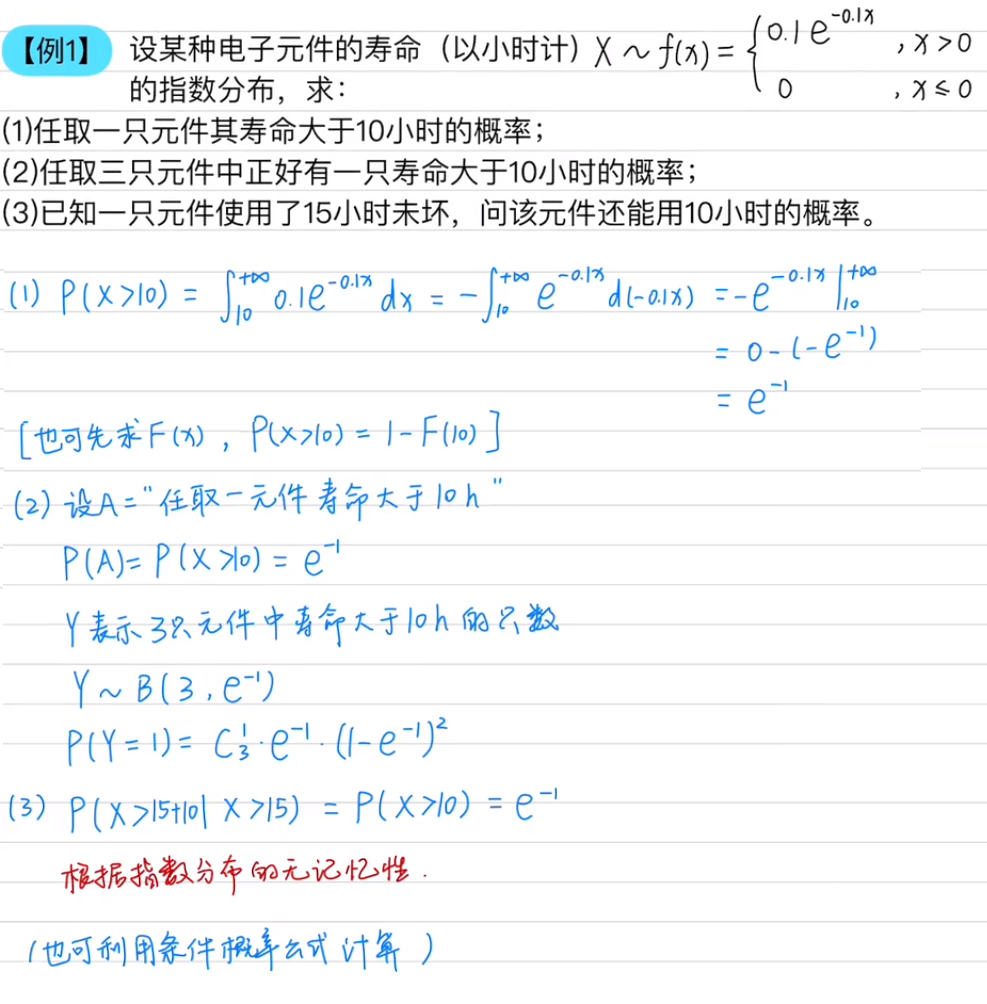 【例1】 设某种电子元件的寿命（以小时计）X ~ f(x) = { 0.1e^{-0.1x} , x > 0
的指数分布，求： 0 , x ≤ 0
(1)任取一只元件其寿命大于10小时的概率；
(2)任取三只元件中正好有一只寿命大于10小时的概率；
(3)已知一只元件使用了15小时未坏，问该元件还能用10小时的概率。
(1) P(X>10) = ∫_{10}^{+∞} 0.1e^{-0.1x} dx = -∫_{10}^{+∞} e^{-0.1x} d(-0.1x) = -e^{-0.1x} |_{10}^{+∞}
= 0-(-e^{-1})
= e^{-1}
[也可先求F(x)，P(X>10) = 1-F(10)]
(2) 设A="任取一元件寿命大于10h"
P(A)= P(X>10) = e^{-1}
Y表示3只元件中寿命大于10h的只数
Y ~ B(3, e^{-1})
P(Y=1) = C_3^1·e^{-1}·(1-e^{-1})^2
(3) P(X>15+10| X>15) = P(X>10) = e^{-1}
根据指数分布的无记忆性.
(也可利用条件概率公式计算)